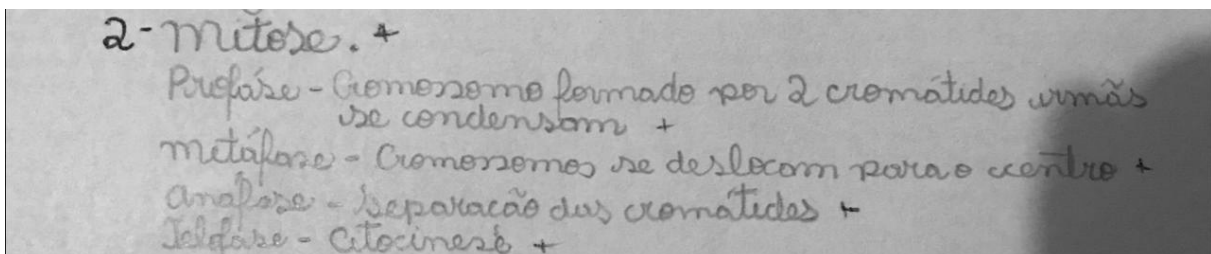 2- Mitose. +
Profáse - Cromossomo formado por 2 cromátides irmãs
se condensam +
metáfase - Cromossomos se deslocam para o centro +
anafase - Separacão das cromátides +
Telofase - Citocinese +